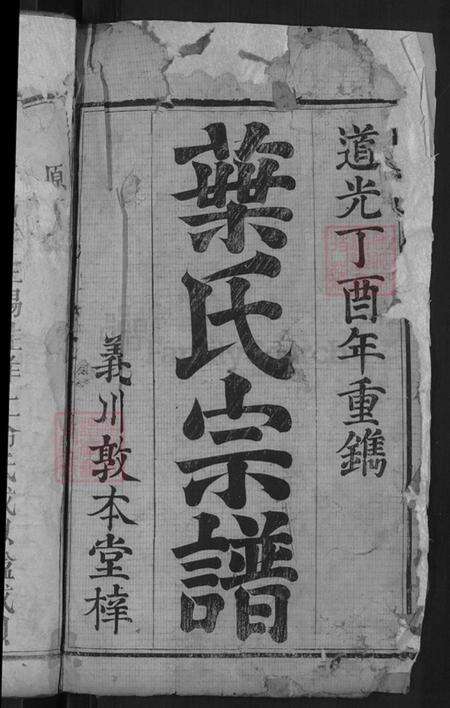 道光丁酉年重鐫
葉氏宗譜
義川敦本堂梓